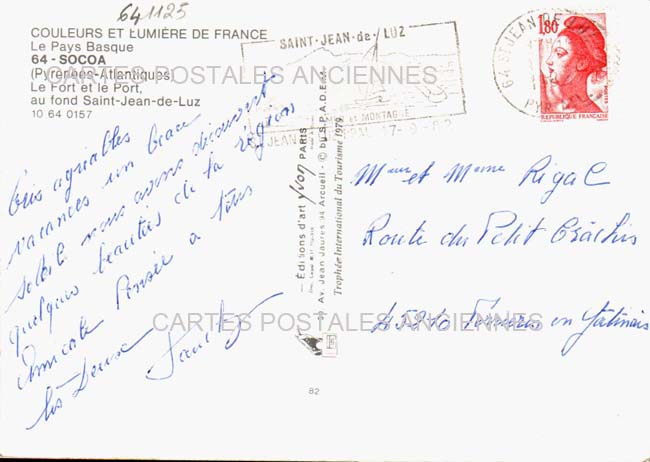 641123
COULEURS ET LUMIÈRE DE FRANCE
Le Pays Basque
64 - SOCOA
(Pyrénées-Atlantiques)
Le Fort et le Port,
au fond Saint-Jean-de-Luz
10 64 0157
Très agréables
vacances un beau
soleil nous avons découvert
quelques beautés de la région
Amicale Pensée à tous
les Deux
SAINT-JEAN-de-LUZ
ET MONTAGNE
ST JEAN
17-9-82
1,80
REPUBLIQUE FRANÇAISE
— Éditions d'art yvon PARIS
Av. Jean Jaurès 94 Arcueil - © by S.P.A.D.E.M.
Trophée International du Tourisme 1979
82
Mr et Mme Rigal
Route du Petit
CARTES POSTALES ANCIENNES
CARTES POSTALES ANCIENNES